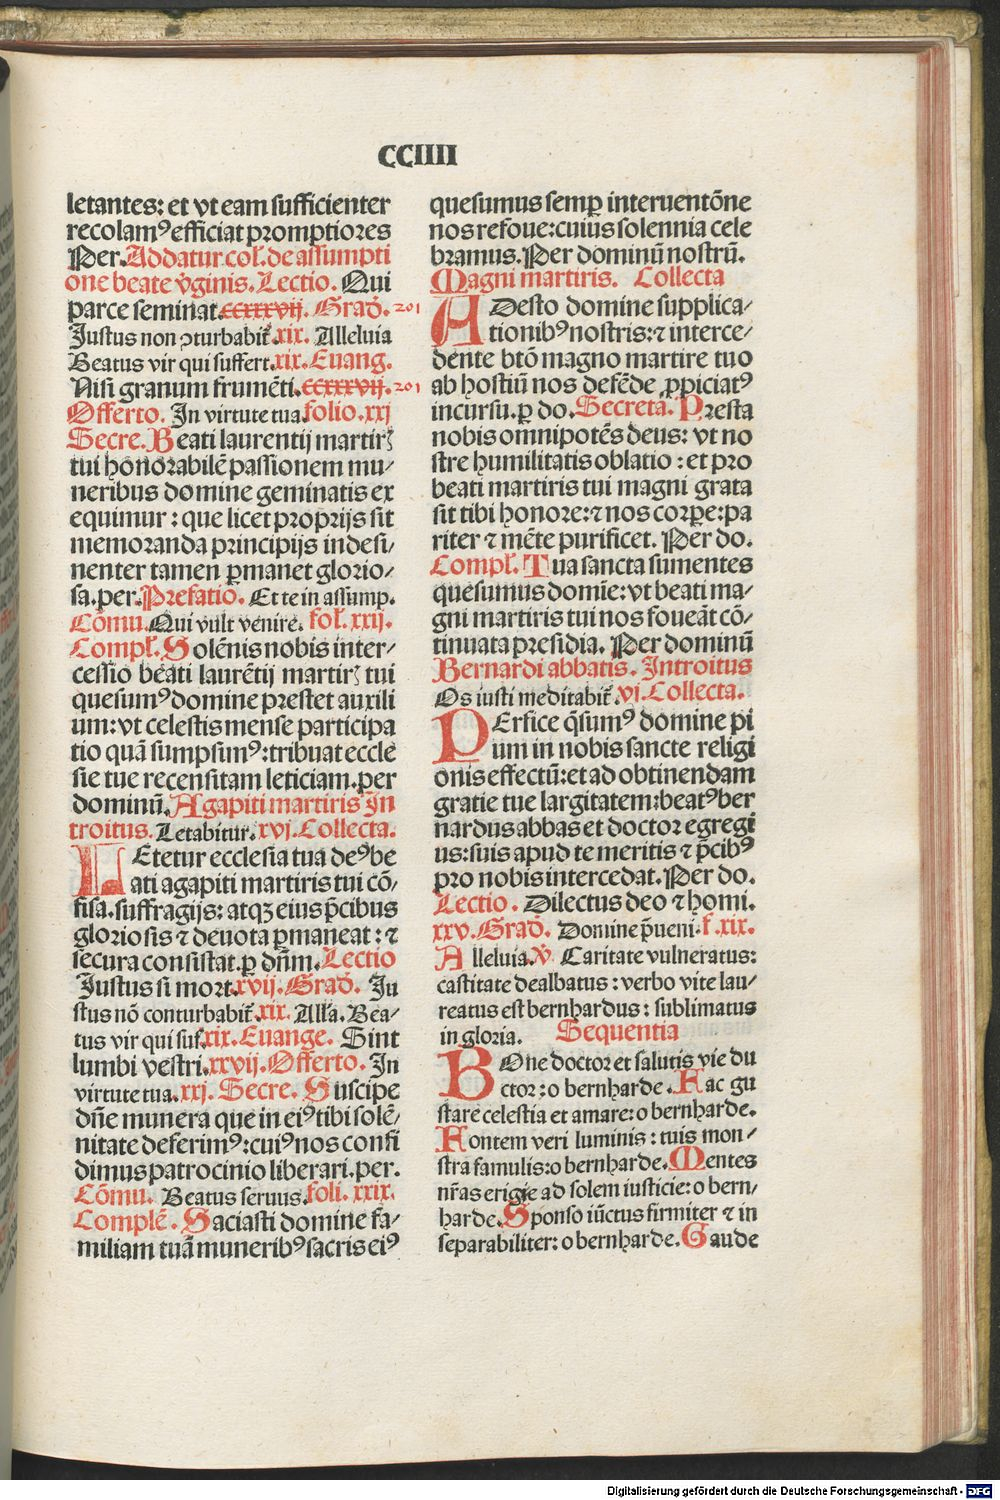 CCIIII
letantes: et vt eam sufficienter
recolamꝰ efficiat promptiores
Per. Addatur col̄. de assumpti
one beate v̄ginis. Lectio. Qui
parce seminat. ccxxxvij. Grad̄. 201
Justus non ↄturbabit᷑. xix. Alleluia
Beatus vir qui suffert. xix. Euang.
Nisi granum frumēti. ccxxxvij. 201
Offerto. In virtute tua. folio. xxj
Secre. Beati laurentij martirꝭ
tui honorabilē passionem mu/
neribus domine geminatis ex
equimur: que licet proprijs sit
memoranda principijs indesi/
nenter tamen ꝑmanet glorio/
sa. per. Prefatio. Et te in assump.
Cōmu. Qui vult venire. fol̄. xxij.
Compl̄. Solēnis nobis inter/
cessio beati laurētij martirꝭ tui
quesumꝰ domine prestet auxili
um: vt celestis mense participa
tio quā sumpsimꝰ: tribuat eccle
sie tue recensitam leticiam. per
dominū. Agapiti martiris In
troitus. Letabitur. xvj. Collecta.
LEtetur ecclesia tua deꝰ be
ati agapiti martiris tui cō/
fisa. suffragijs: atqꝫ eius p̄cibus
gloriosis ⁊ deuota ꝑmaneat: ⁊
secura consistat. ꝑ dn̄m. Lectio
Justus si mort. xvij. Grad̄. Ju
stus nō conturbabit᷑. xix. All̄a. Bea/
tus vir qui suf. xix. Euange. Sint
lumbi vestri. xxvij. Offerto. In
virtute tua. xxj. Secre. Suscipe
dn̄e munera que in eiꝰ tibi solē/
nitate deferimꝰ: cuiꝰ nos confi
dimus patrocinio liberari. per.
Cōmu. Beatus seruus. foli. xxix.
Complē. Saciasti domine fa/
miliam tuā muneribꝰ sacris eiꝰ
quesumus semꝑ interuentōne
nos refoue: cuius solennia cele
bramus. Per dominū nostrū.
Magni martiris. Collecta
ADesto domine supplica/
tionibꝰ nostris: ⁊ interce/
dente btō magno martire tuo
ab hostiū nos defēde ꝓpiciatꝰ
incursu. ꝑ do. Secreta. Presta
nobis omnipotēs deus: vt no
stre humilitatis oblatio: et pro
beati martiris tui magni grata
sit tibi honore: ⁊ nos corꝑe: pa
riter ⁊ mēte purificet. Per do.
Compl̄. Tua sancta sumentes
quesumus domīe: vt beati ma/
gni martiris tui nos foueāt cō/
tinuata presidia. Per dominū
Bernardi abbatis. Introitus
Os iusti meditabit᷑. vj. Collecta.
PErfice q̄sumꝰ domine pi
um in nobis sancte religi
onis effectū: et ad obtinendam
gratie tue largitatem: beatꝰ ber
nardus abbas et doctor egregi
us: suis apud te meritis ⁊ p̄cibꝰ
pro nobis intercedat. Per do.
Lectio. Dilectus deo ⁊ homi.
xxv. Grad̄. Domine p̄ueni. f. xix.
Alleluia. v̄ Caritate vulneratus:
castitate dealbatus: verbo vite lau/
reatus est bernhardus: sublimatus
in gloria. Sequentia
BOne doctor et salutis vie du
ctor: o bernharde. Hac gu
stare celestia et amare: o bernharde.
Fontem veri luminis: tuis mon/
stra famulis: o bernharde. Mentes
nr̄as erigie ad solem iusticie: o bern/
harde. Sponso iūctus firmiter ⁊ in
separabiliter: o bernharde. Gaude
Digitalisierung gefördert durch die Deutsche Forschungsgemeinschaft - DFG